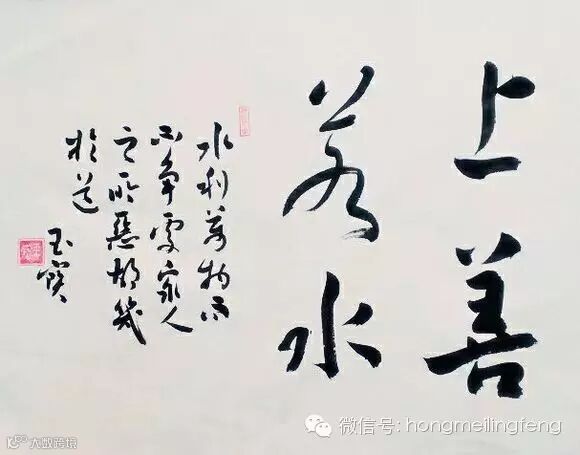 上善
若水
水利萬物而
不争處衆人
之所惡故幾
於道
玉寶
微信号: hongmeilingfeng
大数跨境